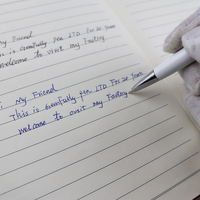 My Friend
This is Gramfully pen LTD For 20 Years
welcome to visit my Factory
Hi My Friend
This is Gramfully pen LTD For 20 Years
welcome to visit my Factory